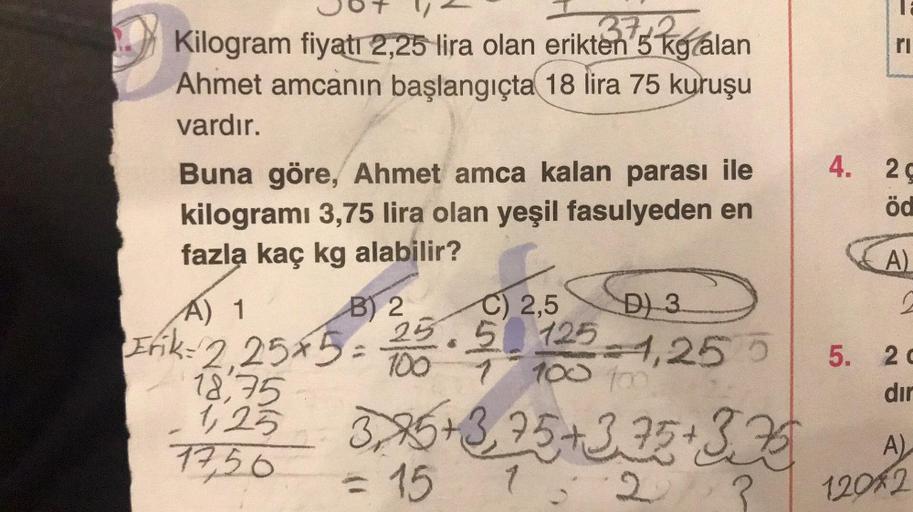 37,2
Kilogram fiyatı 2,25 lira olan erikten 5 kg alan
Ahmet amcanın başlangıçta 18 lira 75 kuruşu
vardır.
Buna göre, Ahmet amca kalan parası ile
kilogramı 3,75 lira olan yeşil fasulyeden en
fazla kaç kg alabilir?
A) 1 B) 2 C) 2,5 D) 3
Erik= 2,25x5 = 25/100 . 5/1 = 125/100 = 1,25
18,75
- 1,25
17,50
3,75+3,75+3,75+3,75
= 15 1 2 3
rı
4. 2 ç
öd
A)
5. 2
dır
A)
120x2